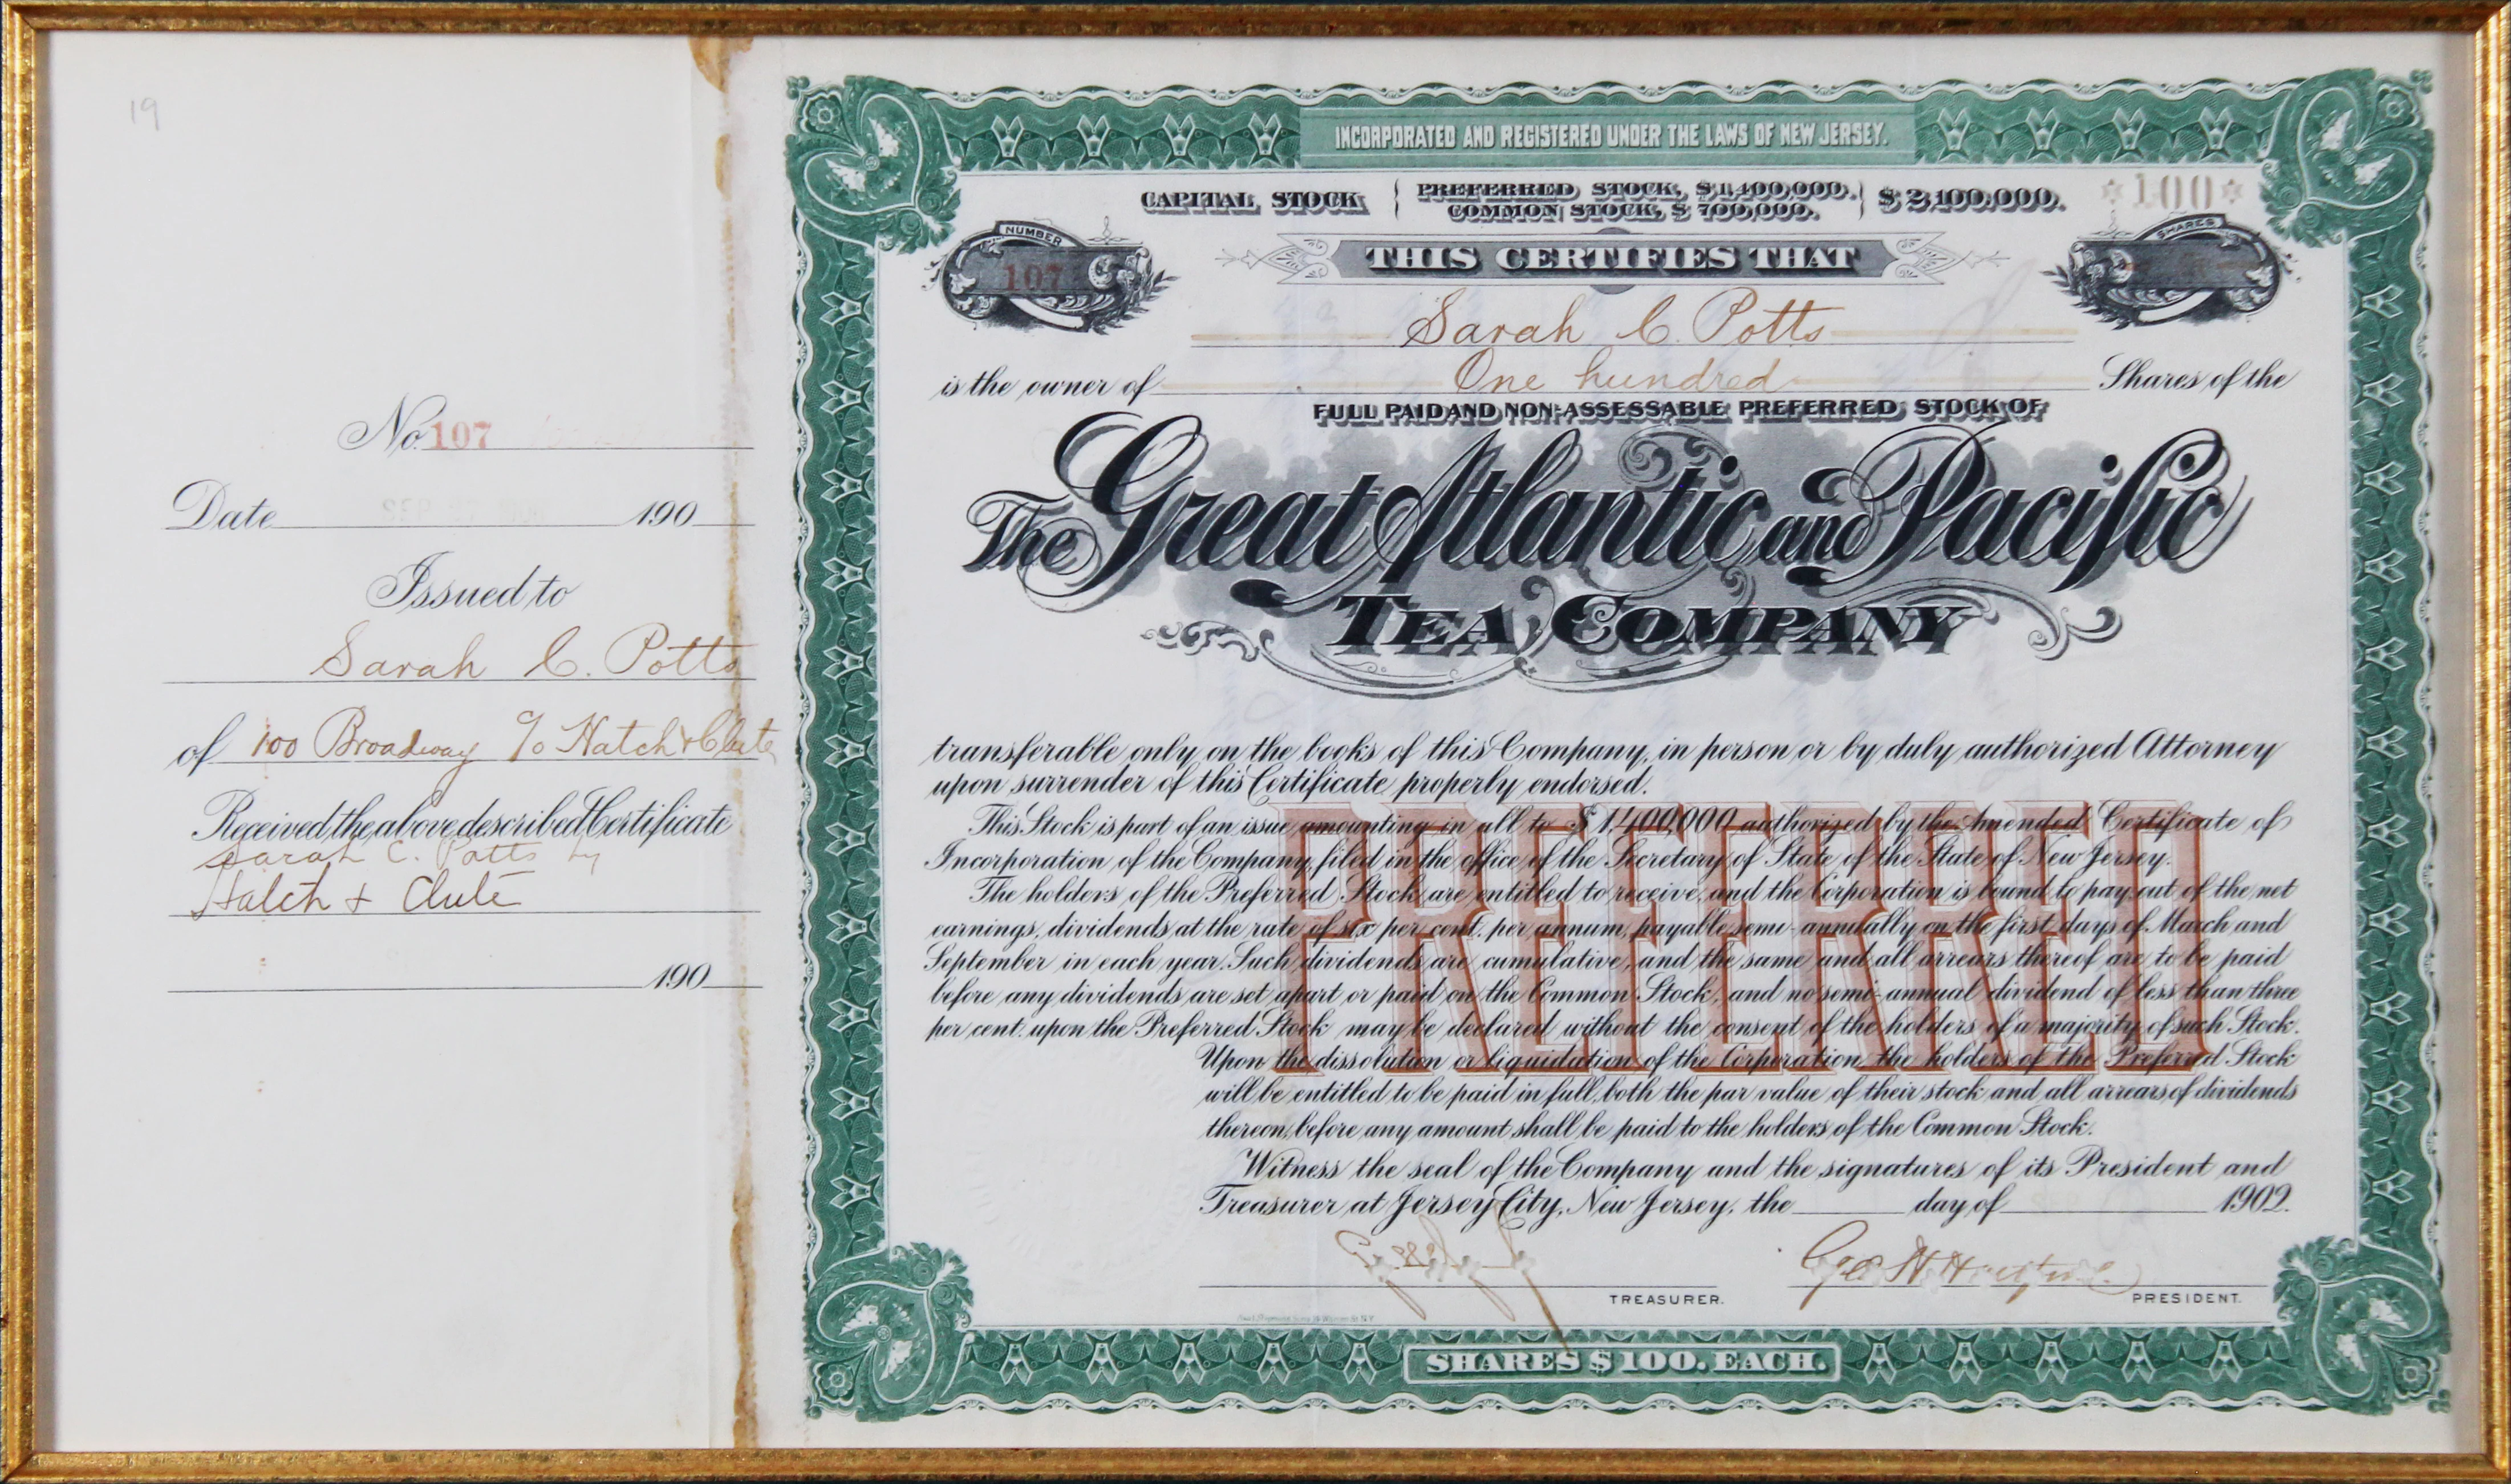 19
No. 107
Date 190
Issued to
Sarah C. Potts
of 100 Broadway c/o Hatch & Clute
Received the above described Certificate
Sarah C. Potts by
Hatch + Clute
190
INCORPORATED AND REGISTERED UNDER THE LAWS OF NEW JERSEY.
CAPITAL STOCK { PREFERRED STOCK, $1,400,000. } $2,100,000.
COMMON STOCK, $700,000.
*100*
NUMBER
107
SHARES
THIS CERTIFIES THAT
Sarah C. Potts
is the owner of One hundred Shares of the
FULL PAID AND NON-ASSESSABLE PREFERRED STOCK OF
The Great Atlantic and Pacific
TEA COMPANY
transferable only on the books of this Company, in person or by duly authorized Attorney
upon surrender of this Certificate properly endorsed.
PREFERRED
This Stock is part of an issue amounting in all to $1,400,000 authorized by the Amended Certificate of
Incorporation of the Company, filed in the office of the Secretary of State of the State of New Jersey.
The holders of the Preferred Stock are entitled to receive, and the Corporation is bound to pay out of the net
earnings, dividends at the rate of six per cent. per annum, payable semi-annually on the first days of March and
September in each year. Such dividends are cumulative, and the same and all arrears thereof are to be paid
before any dividends are set apart or paid on the Common Stock, and no semi-annual dividend of less than three
per cent. upon the Preferred Stock may be declared without the consent of the holders of a majority of such Stock.
Upon the dissolution or liquidation of the Corporation, the holders of the Preferred Stock
will be entitled to be paid in full, both the par value of their stock and all arrears of dividends
thereon, before any amount shall be paid to the holders of the Common Stock.
Witness the seal of the Company and the signatures of its President and
Treasurer at Jersey City, New Jersey, the day of 1902.
Geo H Hartford
TREASURER.
PRESIDENT.
SHARES $100. EACH.